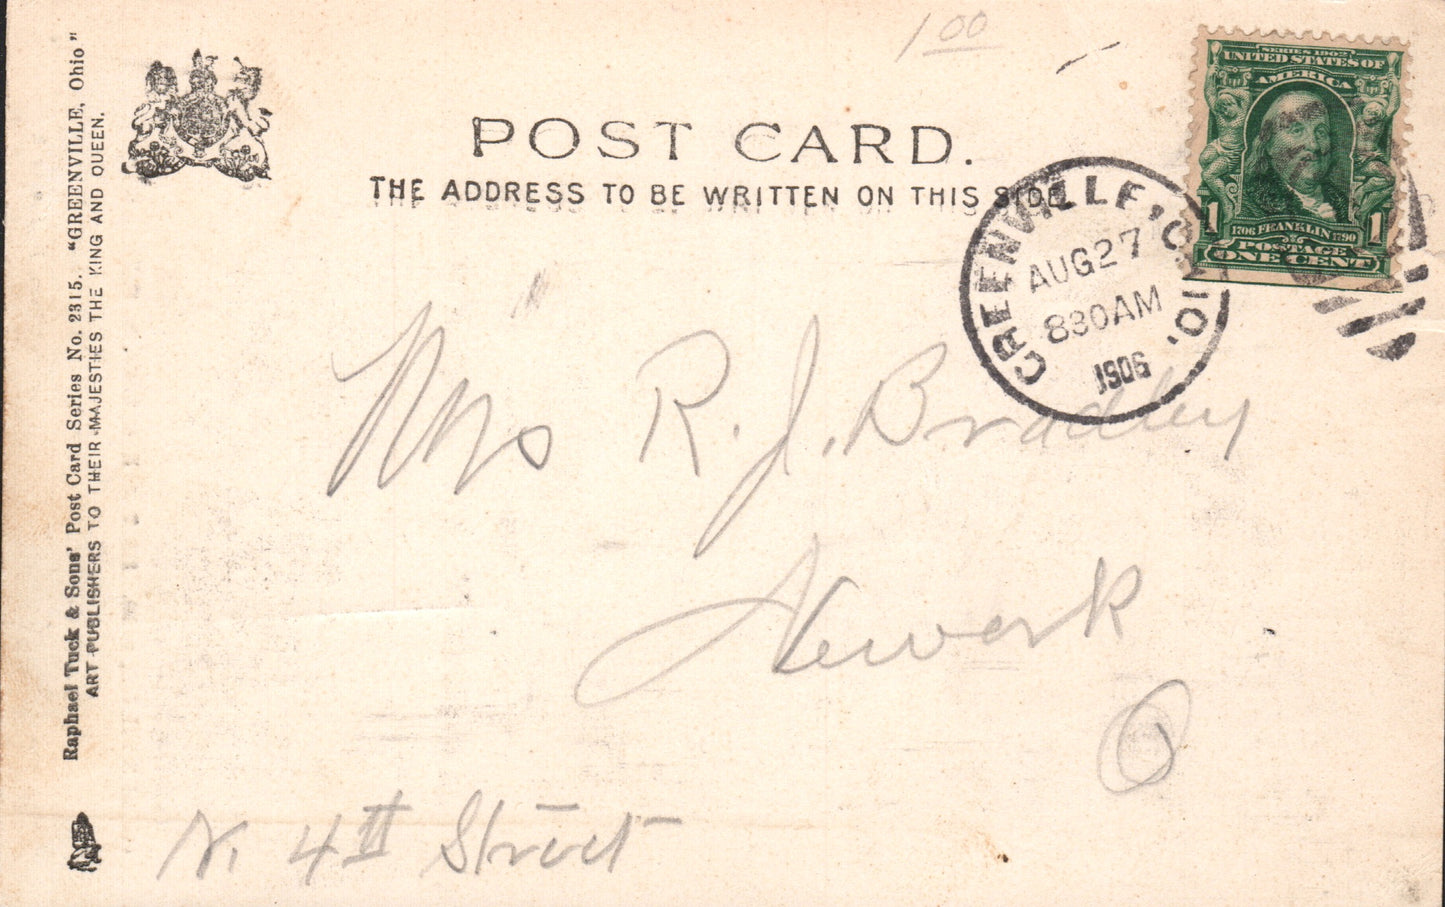 1.00
POST CARD.
THE ADDRESS TO BE WRITTEN ON THIS SIDE.
SERIES 1902
UNITED STATES OF
AMERICA
1 1
1706 FRANKLIN 1790
POSTAGE
ONE CENT
GREENVILLE, OHIO.
AUG 27
830AM
1906
Raphael Tuck & Sons' Post Card Series No. 2315. "GREENVILLE, Ohio"
ART PUBLISHERS TO THEIR MAJESTIES THE KING AND QUEEN.
Mrs R. J. Bradley
Newark
O
N. 4th Street